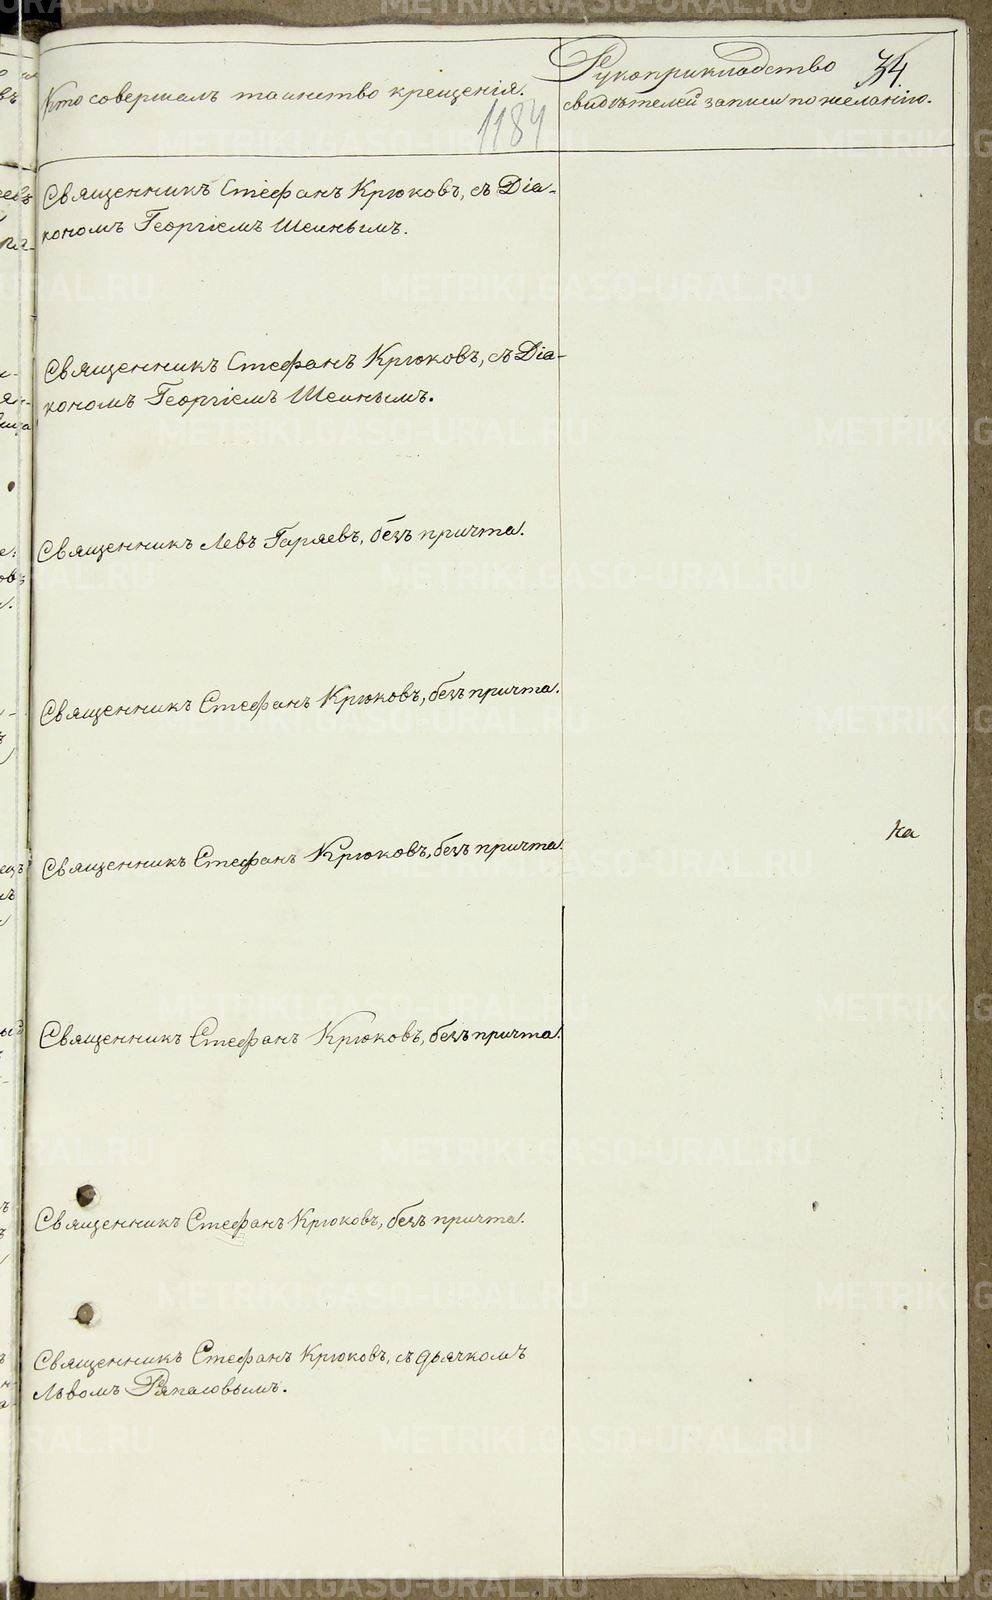 Кто совершалъ таинство крещенія.
Рукоприкладство
свидѣтелей записи по желанію.
34
1184
Священникъ Стефанъ Крюковъ, съ Діа-
кономъ Георгіемъ Шеинымъ.
Священникъ Стефанъ Крюковъ, съ Діа-
кономъ Георгіемъ Шеинымъ.
Священникъ Левъ Гаряевъ, безъ причта.
Священникъ Стефанъ Крюковъ, безъ причта.
Священникъ Стефанъ Крюковъ, безъ причта.
на
Священникъ Стефанъ Крюковъ, безъ причта.
Священникъ Стефанъ Крюковъ, безъ причта.
Священникъ Стефанъ Крюковъ, съ дьячкомъ
Львомъ Ряпасовымъ.
METRIKI.GASO-URAL.RU